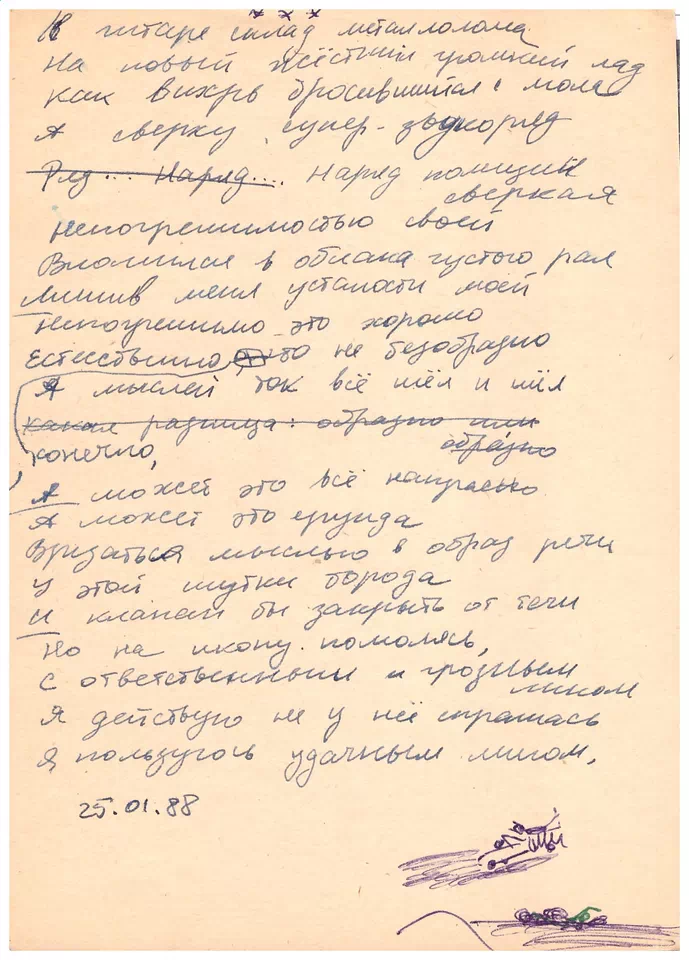 * * *
В гитаре склад металлолома
На новый жёсткий громкий лад
Как вихрь бросившийся с мола
А сверху супер-звукоряд
Ряд... Наряд.... Наряд полиций
сверкая
Непогрешимостью своей
Вломился в облака густого рая
Лишив меня усталости моей
Непогрешимо это хорошо
Естественно что не безобразно
А мыслей ток всё шёл и шёл
какая разница: образно или
образно
конечно,
А может это всё напрасно
А может это ерунда
Врезаться мыслью в образ речи
У этой шутки борода
И клапан бы закрыть от течи
Но на икону помолясь,
с ответственным и грозным
ликом
Я действую не у неё спрашась
Я пользуюсь удачным мигом,
25.01.88